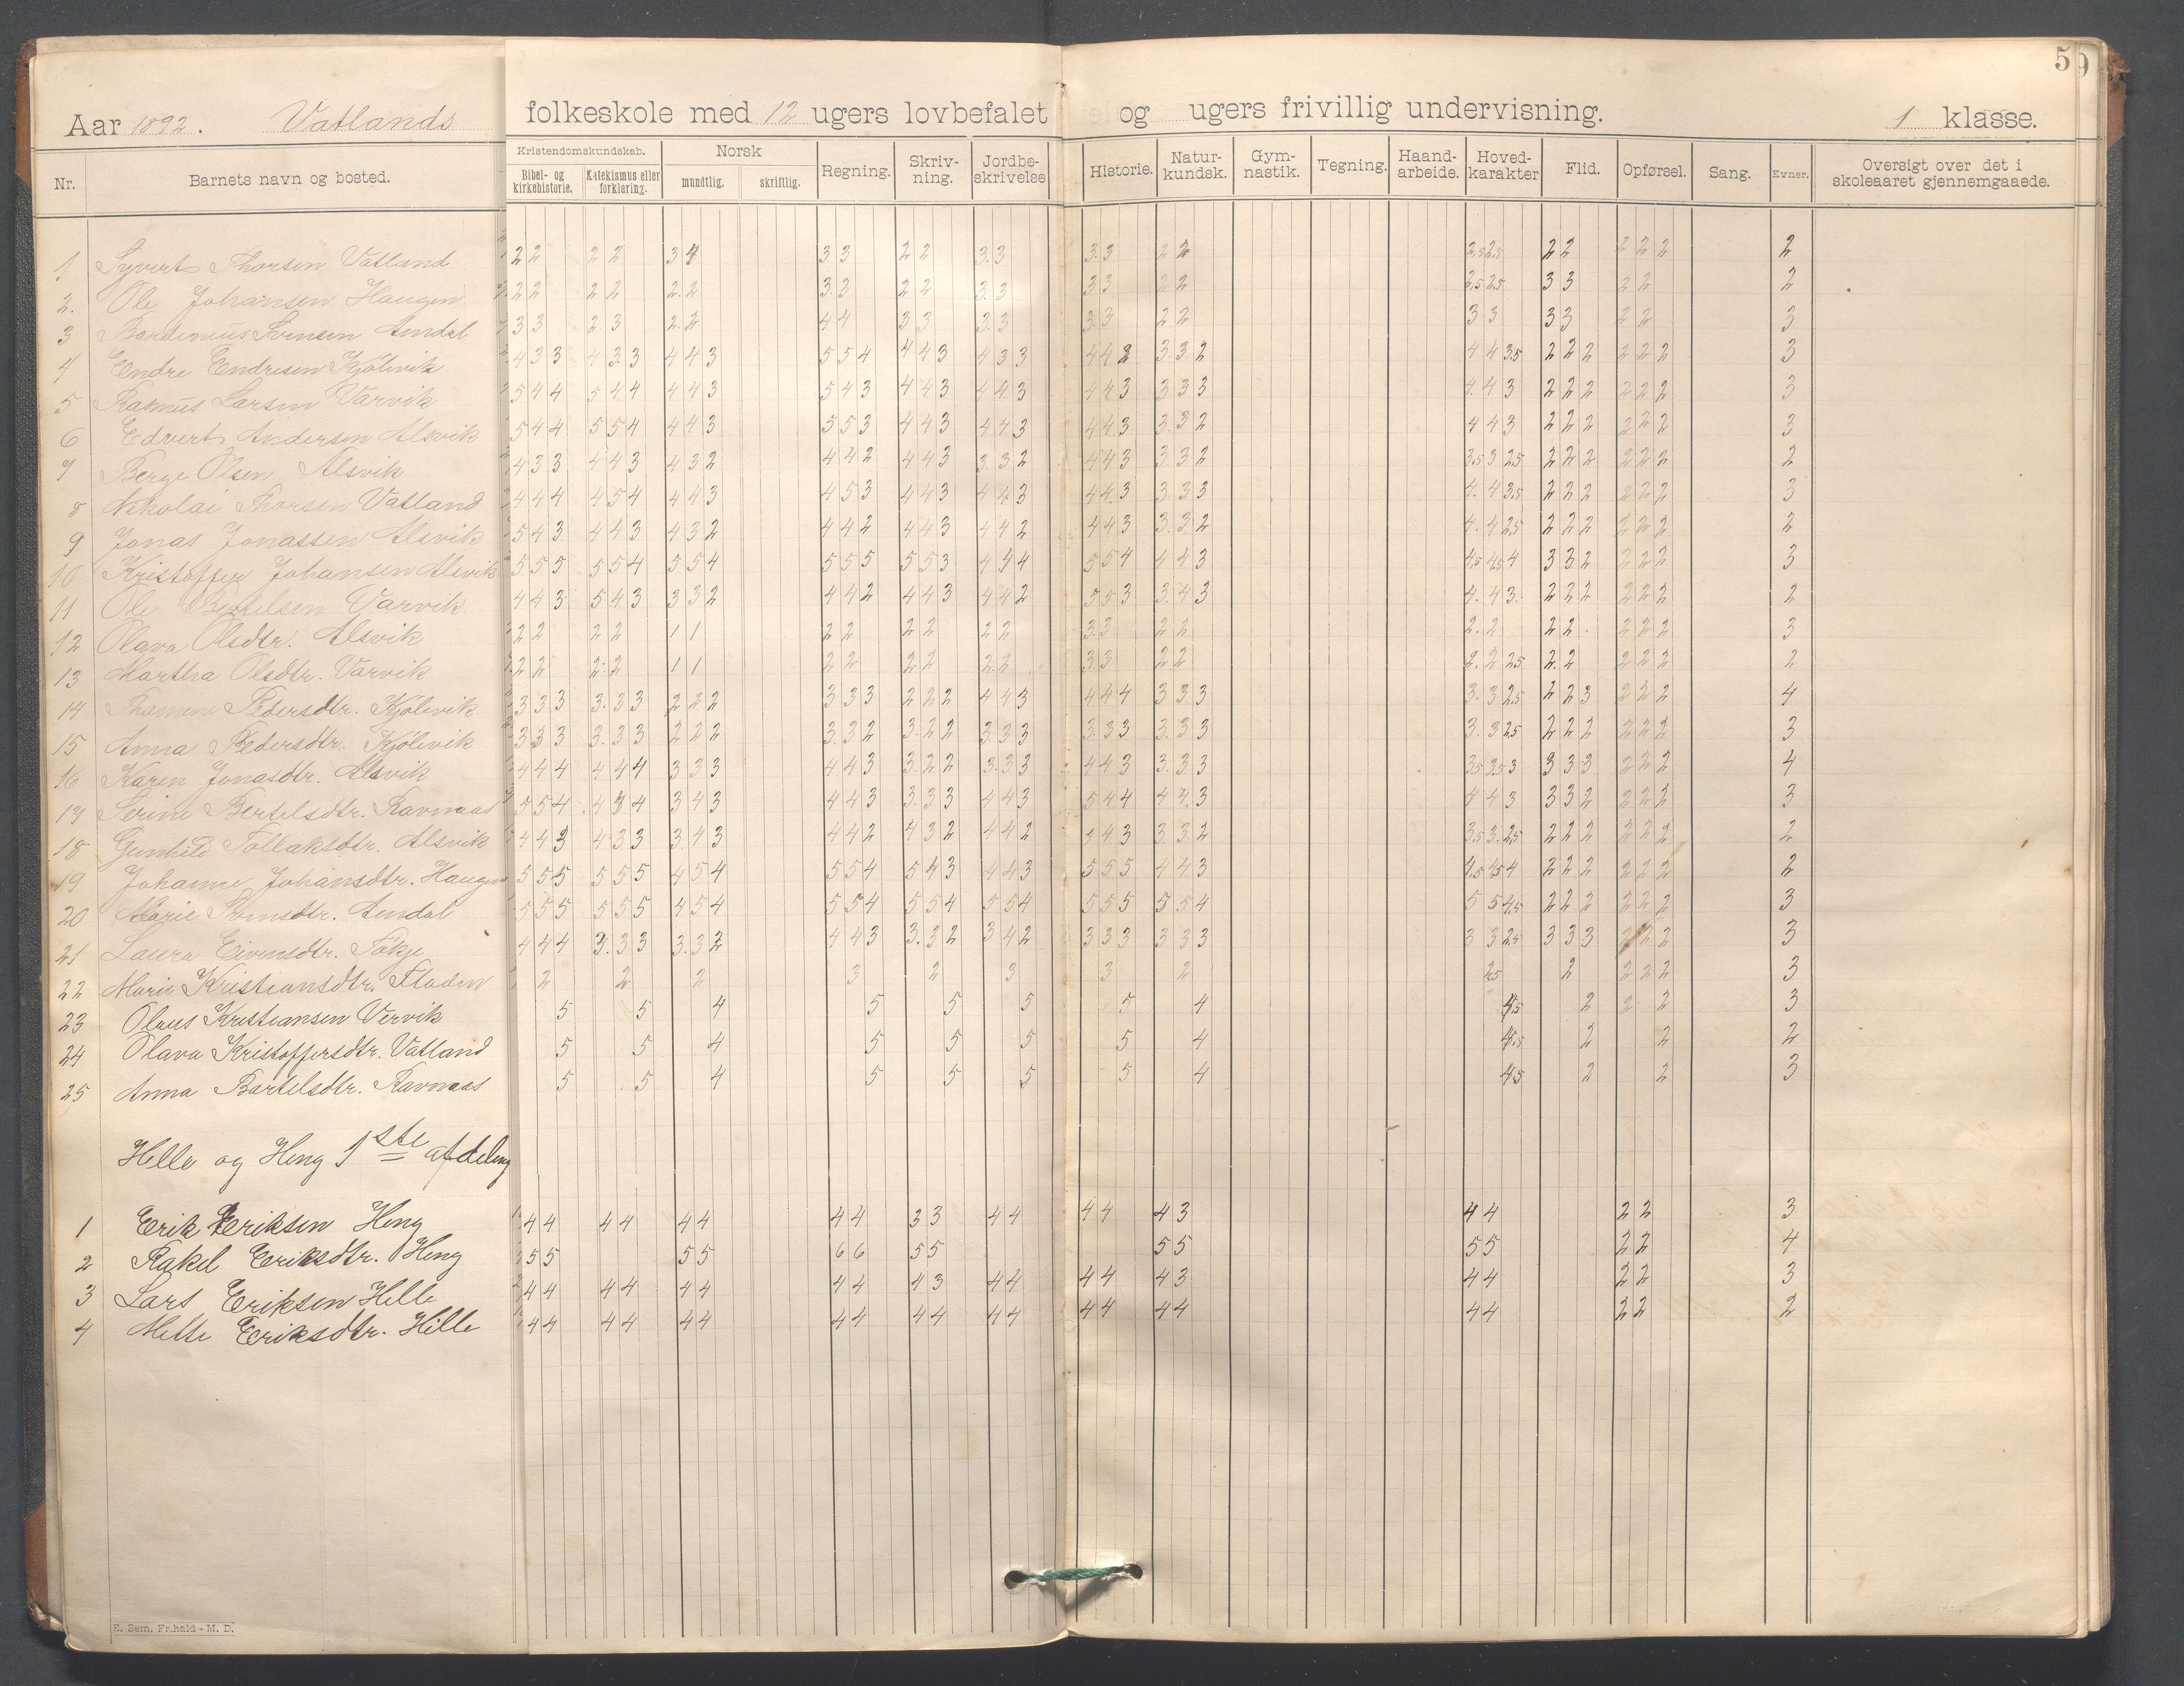 59
Aar 1892. Vatlands folkeskole med 12 ugers lovbefalet og ugers frivillig undervisning. 1 klasse.
Nr. Barnets navn og bosted. Kristendomskundskab. Bibel- og kirkehistorie. Katekismus eller forklaring. Norsk mundtlig. skriftlig. Regning. Skriv-ning. Jordbe-skrivelse Historie. Natur-kundsk. Gym-nastik. Tegning. Haand-arbeide. Hoved-karakter Flid. Opførsel. Sang. Evner. Oversigt over det i skoleaaret gjennemgaaede.
1. Syvert Thorsen Vatland 2 2 2 2 3 3 3 2 2 3.3 3.3 2 2 2,5 2,5 2 2 2 2 2 2
2. Ole Johansen Haugen 2 2 2 2 2.2 3.3 2 2 3.3 3 3 2 2 2,5 2,5 3 3 2 2 2
3 Amdal 3 3 2 3 2.2 4 4 3 3 3.3 3.3 2 2 3 3 3 3 2 2 3
4 Endre Endresen Kjølevik 4 3 3 4 3 3 4 4 3 5 5 4 4 4 3 4 3 3 4 4 2 3.3 2 4 4 3,5 2 2 2 2 2 2 3
5 Rasmus Larsen Varvik 5 4 4 5 4 4 4 4 3 5 4 3 4 4 3 4 4 3 4 4 3 3 3 3 4 4 3 2 2 2 2 2 2 3
6 Edvert Andersen Alsvik 5 4 4 5 5 4 4 4 3 5 5 3 4 4 3 4 4 3 4 4 3 3.3 2 4 4 3 2 2 2 2 2 2 3
7 Berge Olsen Alsvik 4 3 3 4 4 3 4 3 2 4 4 2 4 4 3 3.3 2 4 4 3 3.3 2 3,5 3 2,5 2 2 2 2 2 2 2
8 Nikolai Thorsen Vatland 4 4 4 4 5 4 4 4 3 4 5 3 4 4 3 4 4 3 4 4 3 3 3 3 4. 4 3,5 2 2 2 2 2 2 3
9 Jonas Jonassen Alsvik 5 4 3 4 4 3 4 3 2 4 4 2 4 4 3 4 4 2 4 4 3 3.3 2 4. 4 2,5 2 2 2 2 2 2 2
10 Kristoffer Johansen Alsvik 5 5 5 5 5 4 5 5 4 5 5 5 5 5 3 4 5 4 5 5 4 4 4 3 4,5 4,5 4 3 3 2 2 2 2 3
11 Ole Bertelsen Varvik 4 4 3 5 4 3 3 3 2 4 4 2 4 4 3 4 4 2 5 5 3 3.4 3 4. 4 3. 2 2 2 2 2 2 2
12 Olava Olsdtr. Alsvik 2 2 2 2 1 1 2 2 2 2 2 2 3.3 2 2 2. 2 2 2. 2 2 2 3
13 Martha Olsdtr. Varvik 2 2 2.2 1 1 2 2 2 2 2.2 3 3 2 2 2. 2 2,5 2.2 2 2 2 2
14 Pedersdtr. Kjølevik 3 3 3 3.3 3 2 2 2 3 3 3 2 2 2 4 4 3 4 4 4 3 3 3 3. 3 2,5 2 2 3 2 2 2 4
15 Anna Pedersdtr. Kjølevik 3 3 3 3.3 3 2 2 2 3.3 2 3.2 2 3.3 3 3.3 3 3 3 3 3. 3 2,5 2 2 2 2 2 2 3
16 Karen Jonasdtr. Alsvik 4 4 4 4 4 4 3 3 3 4 4 3 3.2 2 3.3 3 4 4 3 3.3 3 3,5 3,5 3 3 3 3 2 2 2 4
17 Serine Bertelsdtr. Ravnaas 5 5 4 4 4 4 3 4 3 4 4 3 3.3 3 4 4 3 5 4 4 4 4 3 4 4 3 3 3 2 2 2 2 3
18 Gunhild Tollaksdtr. Alsvik 4 4 3 4 3 3 3 4 3 4 4 2 4 3 2 4 4 2 4 4 3 3.3 2 3,5 3. 2,5 2 2 2 2 2 2 2
19 Johanne Johansdtr. Haugen 5 5 5 5 5 5 4 5 4 5 5 4 5 4 3 4 4 3 5 5 5 4 4 3 4,5 4,5 4 2 2 2 2 2 2 2
20 Marie Amdal 5 5 5 5 5 5 4 5 4 5 5 4 5 5 4 5 5 4 5 5 5 5 5 4 5 5 4,5 2 2 2 2 2 2 3
21 Laura 4 4 4 3.3 3 3.3 2 4 4 3 3.3 2 3 4 2 3 3 3 3 3 3 3 3 2,5 3 3 3 2 2 2 3
22 Marie Kristiansdtr. Floden 2 2 2 3 2 3 3 2 2,5 2 2 2 2 3
23 Olaus Kristiansen Vervik 5 5 4 5 5 5 5 4 4,5 2 2 2 3
24 Olava Kristoffersdtr. Vatland 5 5 4 5 5 5 5 4 4,5 2 2 2
25 Anna Bartelsdtr. Ravnaas 5 5 4 5 5 5 5 4 4,5 2 2 3
Helle og Heng 1ste afdeling
1 Erik Eriksen Heng 4 4 4 4 4 4 4 4 3 3 4 4 4 4 4 3 4 4 2 2 3
2 Rakel Eriksdtr. Heng 5 5 5 5 6 6 5 5 5 5 5 5 2 2 4
3 Lars Eriksen Helle 4 4 4 4 4 4 4 4 4 3 4 4 4 4 4 3 4 4 2 2 3
4 Mette Eriksdtr. Hille 4 4 4 4 4 4 4 4 4 4 4 4 4 4 4 4 4 4 2 2 2
E. Sem, Fr.hald - M. D.